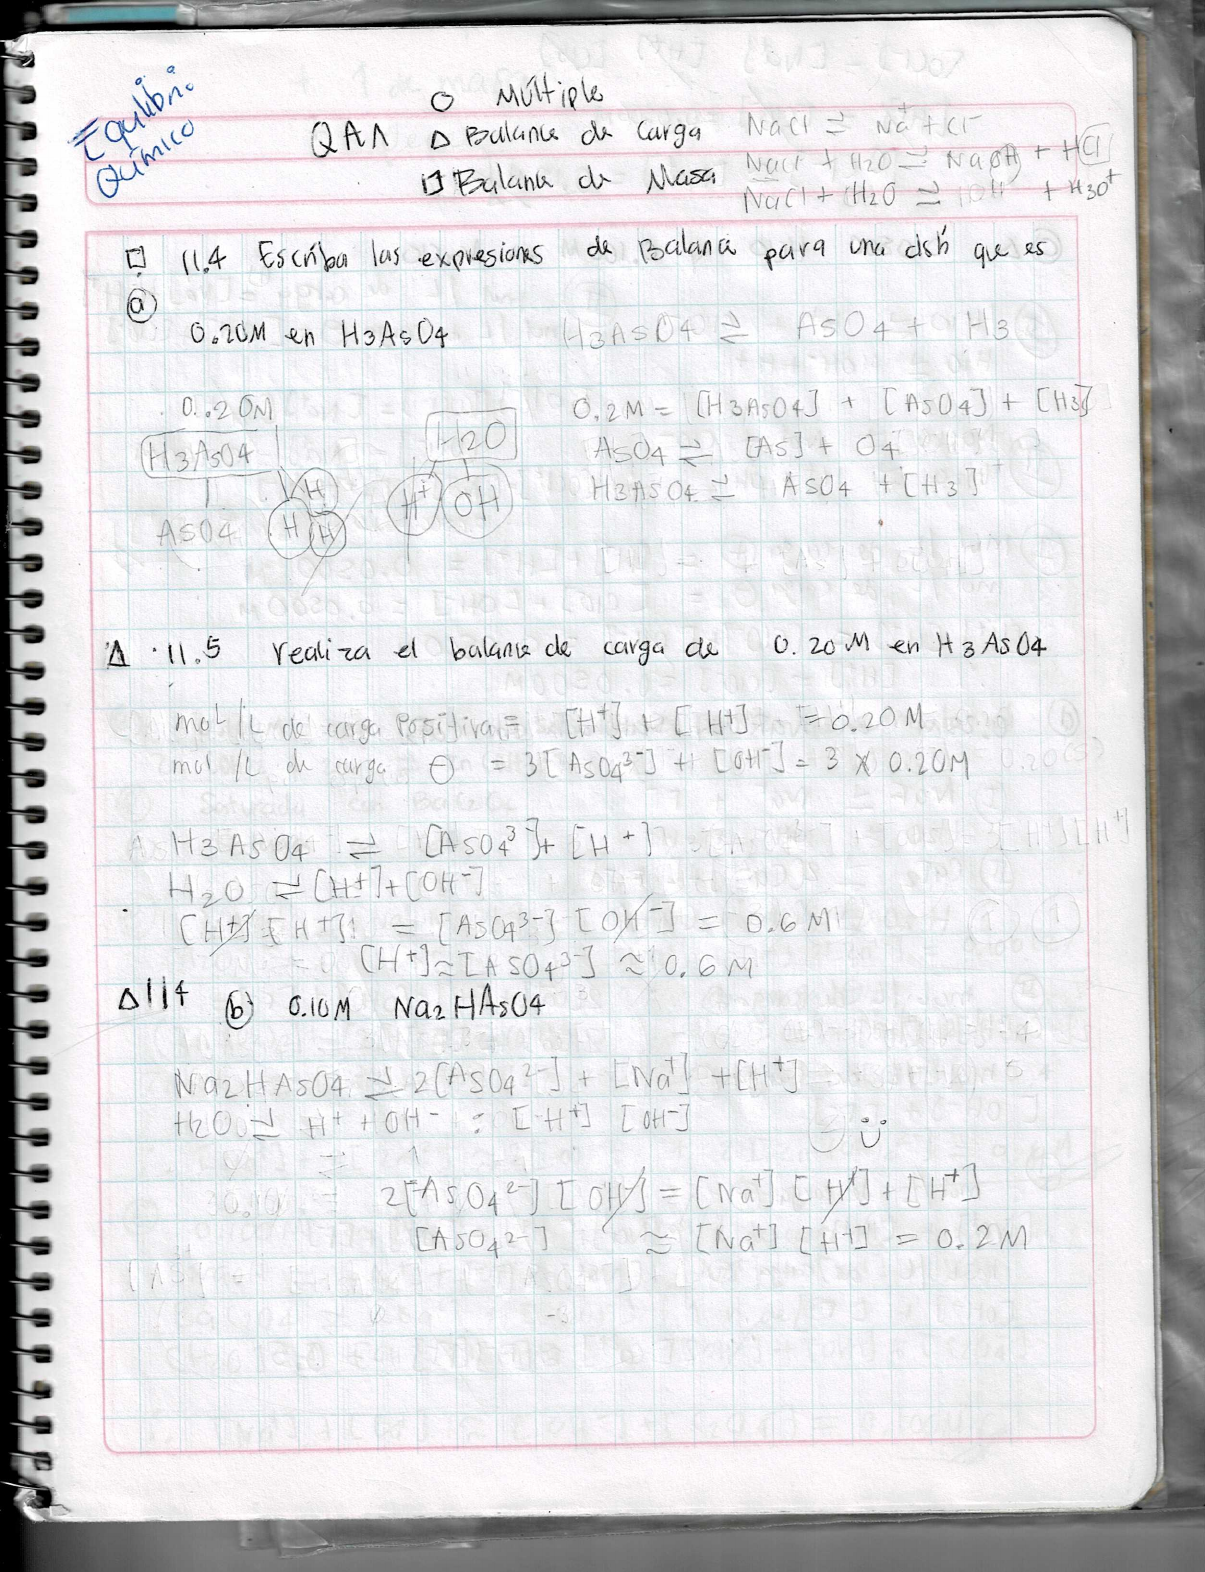 Equilibrio
Químico
○ Múltiple
QAA △ Balance de Carga NaCl ⇌ Na⁺ + Cl⁻
□ Balance de Masa NaCl + H₂O ⇌ NaOH + HCl
NaCl + H₂O ⇌ OH + H₃O⁺
□ 11.4 Escriba las expresiones de Balance para una disn que es
ⓐ
0.20M en H₃AsO₄ H₃AsO₄ ⇌ AsO₄ + H₃
0.20M 0.2M = [H₃AsO₄] + [AsO₄] + [H₃]
H₃AsO₄ H₂O AsO₄ ⇌ [As] + O₄
H H⁺ OH H₃AsO₄ ⇌ AsO₄ + [H₃]⁺
AsO₄ H H
△ 11.5 realiza el balance de carga de 0.20M en H₃AsO₄
mol/L de carga positiva = [H⁺] + [H⁺] = 0.20M
mol/L de carga ⊖ = 3[AsO₄³⁻] + [OH⁻] = 3 x 0.20M
H₃AsO₄ ⇌ [AsO₄³] + [H⁺]
H₂O ⇌ [H⁺] + [OH⁻]
[H⁺] [H⁺] = [AsO₄³⁻] [OH⁻] = 0.6M
[H⁺] ≈ [ASO₄³⁻] ≈ 0.6M
△ 114 ⓑ 0.10M Na₂HAsO₄
Na₂HAsO₄ ⇌ 2[AsO₄²⁻] + [Na⁺] + [H⁺]
H₂O ⇌ H⁺ + OH⁻ : [H⁺] [OH⁻]
2[AsO₄²⁻] [OH⁻] = [Na⁺] [H⁺] + [H⁺]
[ASO₄²⁻] ≈ [Na⁺] [H⁺] = 0.2M